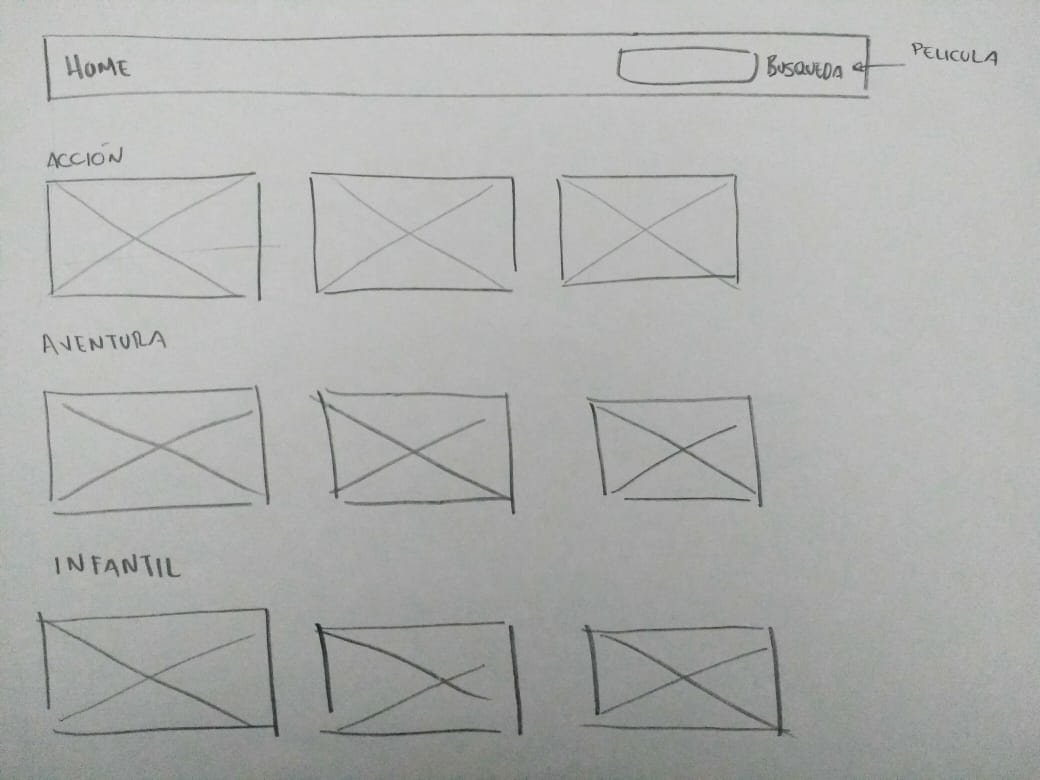 HOME
BUSQUEDA
PELICULA
ACCIÓN
AVENTURA
INFANTIL